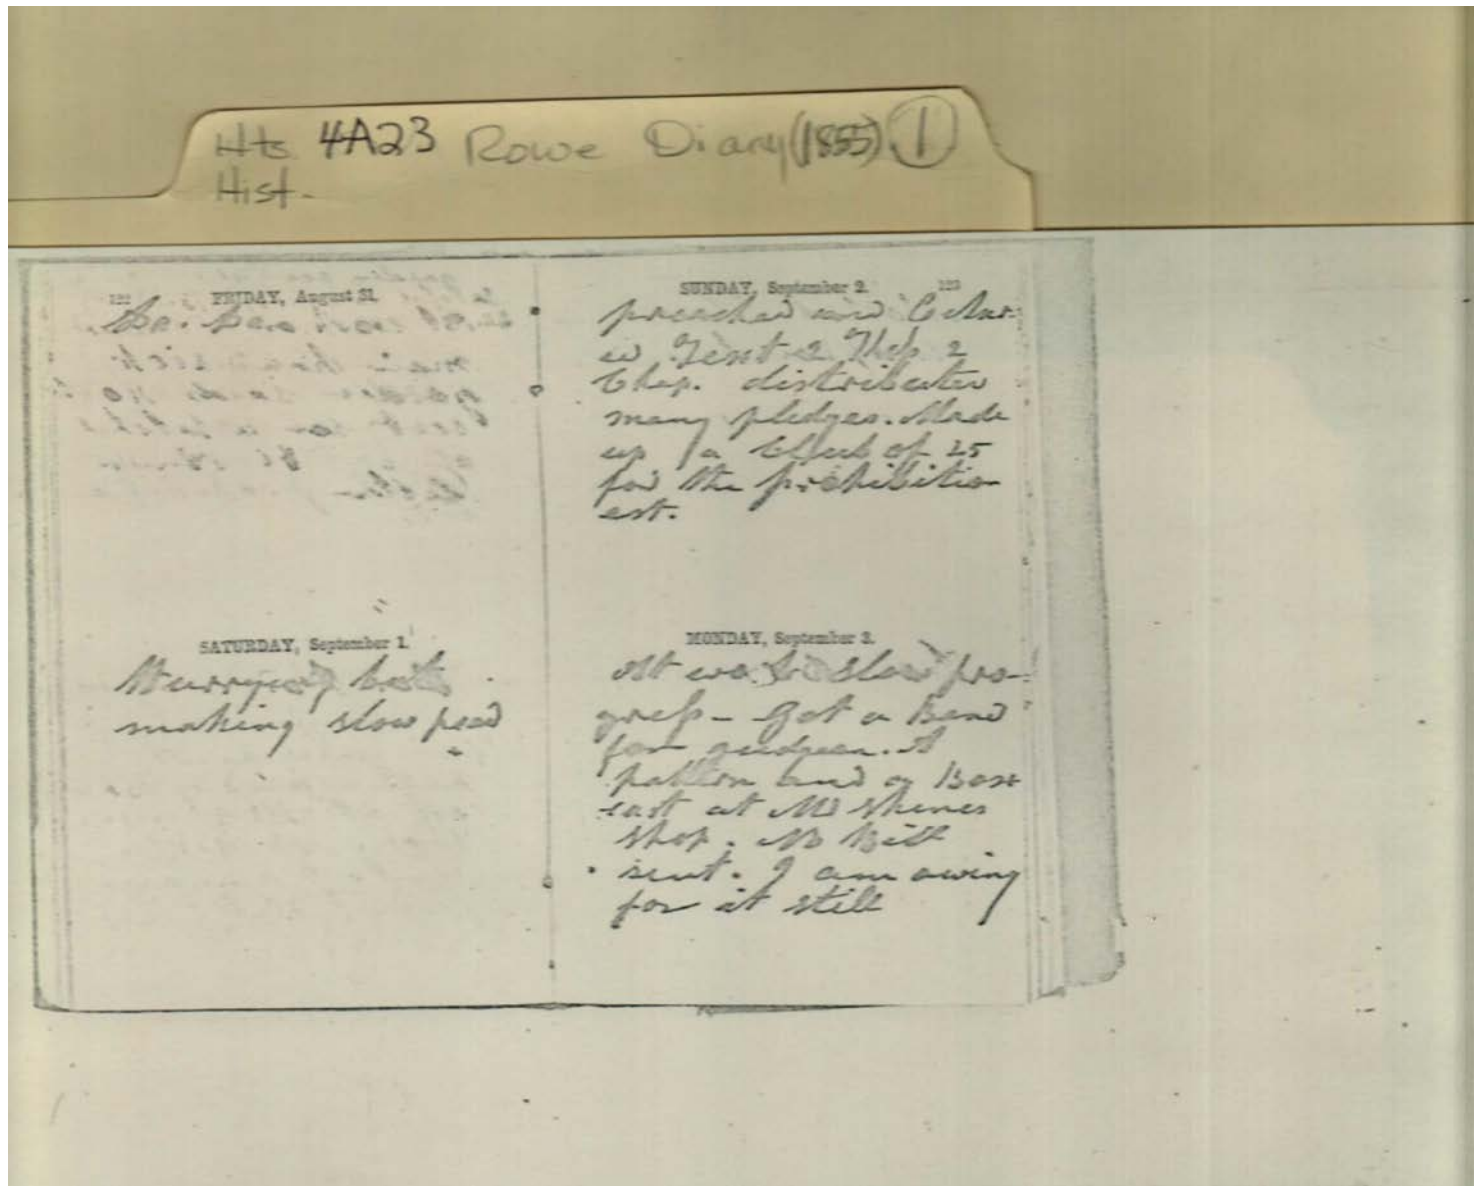 Hts 4A23 Rowe Diary (1855) 1
Hist.
122 FRIDAY, August 31.
Do. Do.
SATURDAY, September 1.
Hurrying but
making slow peed
SUNDAY, September 2. 123
preached and
in Tent 2 Thes 2
Chap. distributed
many pledges. Made
up a Club of 25
for the prohibition
est.
MONDAY, September 3.
At work slow pro-
gress - Got a Band
for gudgeon. A
pattern and a Box
cast at
shop. No Bill
sent. I am owing
for it still